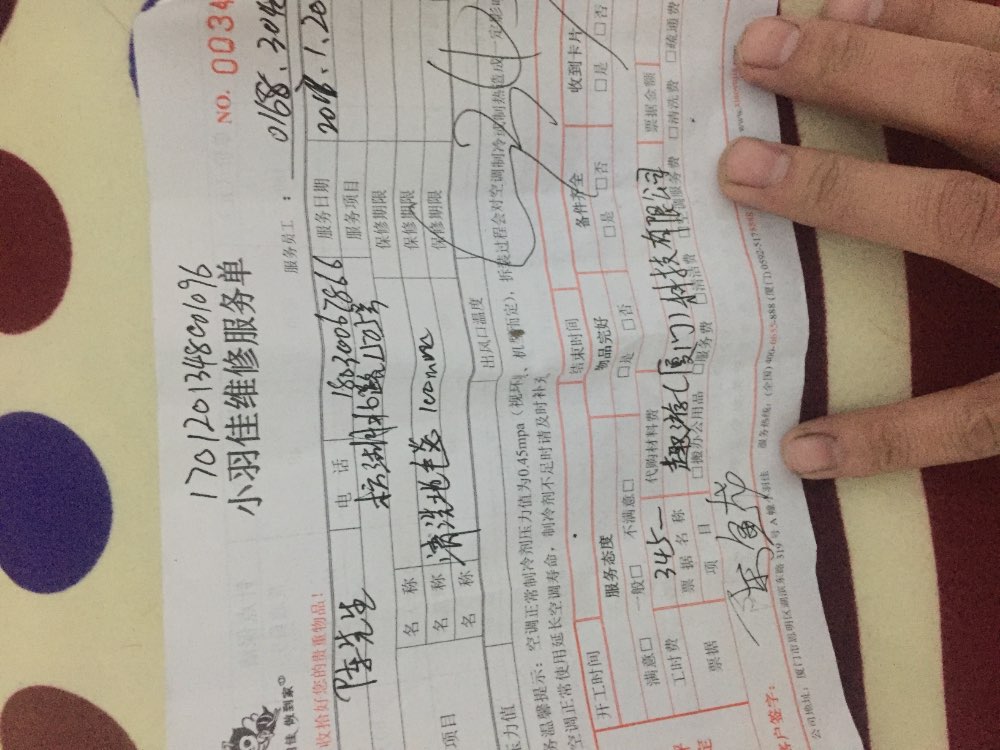 NO. 0034
170120134801096
小羽佳维修服务单
服务员工： 0168.304
收拾好您的贵重物品！
陈先生 电 话 18030067866 服务日期 2018.1.20
服务项目
名 称 保修期限
项目 名 称 清洗地毯 100m² 保修期限
名 称 保修期限
压力值 出风口温度
务温馨提示：空调正常制冷剂压力值为0.45mpa（视环、机 而定），拆装过程会对空调制冷或制热造成一定影响
空调正常使用延长空调寿命，制冷剂不足时请及时补充
开工时间 结束时间
服务态度 物品完好 备件齐全 收到卡片
满意□ 一般□ 不满意□ □是 □否 □是 □否 □是 □否
工时费 345 代购材料费 票据金额
票据 票 据 名 称 趣游（厦门）科技有限公司
项 目 □搬办公用品 □服务费 □清洁费 □空调服务费 □清洗费 □疏通费
客户签字：
公司地址：厦门市思明区湖滨东路 319 号 A 幢 服务热线：（全国）400-0633-888（厦门）0592-517